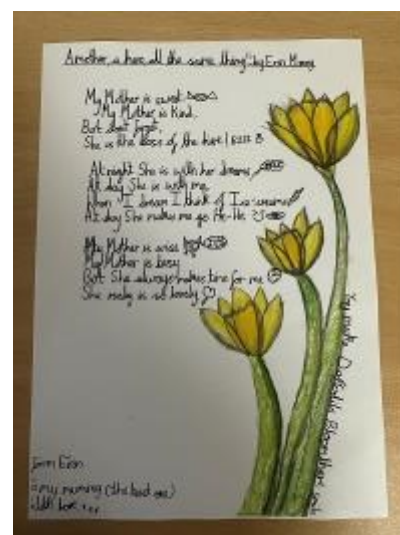 "A mother, a hero, all the same thing" by Erin
My Mother is sweet
My Mother is Kind.
But don't forget,
She is the boss of the hive! BZZZ
At night She is with her dreams
At day She is with me,
When I dream I think of Ice-cream
At day She makes me go He-He
My Mother is wise
My Mother is busy
But She always makes time for me
She really is so lovely
You make Daffodils Bloom
From Erin
my mummy (the best one)
With love